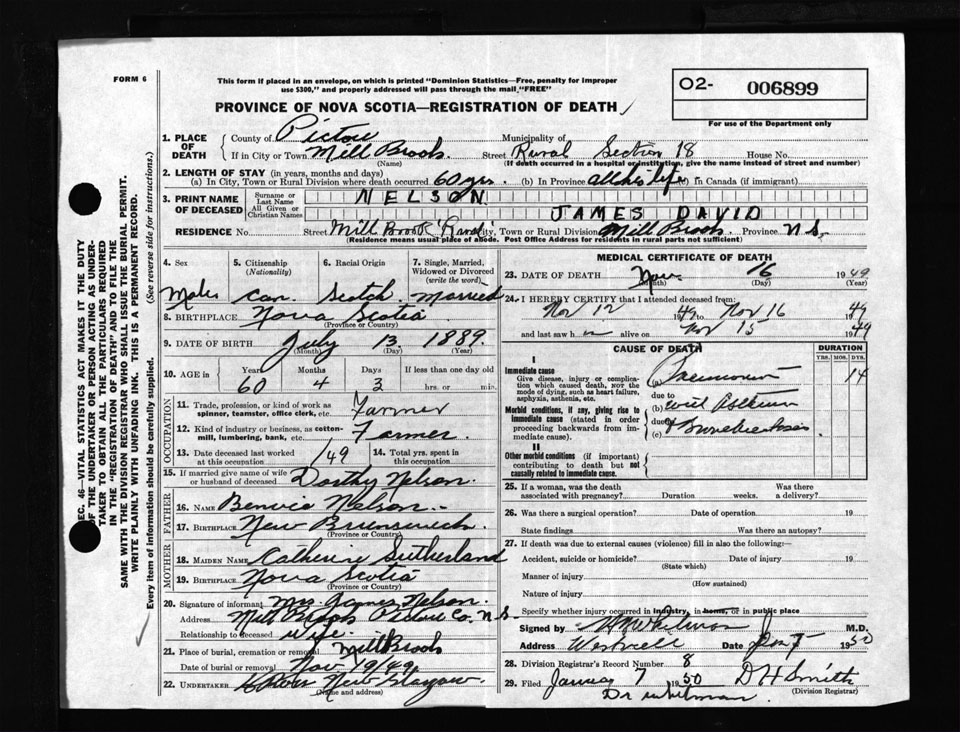 FORM 6
This form if placed in an envelope, on which is printed "Dominion Statistics—Free, penalty for improper
use $300," and properly addressed will pass through the mail "FREE"
O2- 006899
For use of the Department only
PROVINCE OF NOVA SCOTIA—REGISTRATION OF DEATH
1. PLACE OF DEATH
County of Pictou Municipality of
If in City or Town Mill Brook. Street Rural Section 18 House No.
(Name) (If death occurred in a hospital or institution, give the name instead of street and number)
2. LENGTH OF STAY (in years, months and days)
(a) In City, Town or Rural Division where death occurred 60 yrs. (b) In Province all his life (c) in Canada (if immigrant)
3. PRINT NAME OF DECEASED
Surname or Last Name NELSON
All Given or Christian Names JAMES DAVID
RESIDENCE No. Street Mill Brook Rural City, Town or Rural Division Mill Brook Province N S.
(Residence means usual place of abode. Post Office Address for residents in rural parts not sufficient)
4. Sex 5. Citizenship (Nationality) 6. Racial Origin 7. Single, Married, Widowed or Divorced (write the word)
Male Can. Scotch. Married
8. BIRTHPLACE Nova Scotia
(Province or Country)
9. DATE OF BIRTH July 13. 1889.
(Month) (Day) (Year)
10. AGE in Years Months Days If less than one day old
60 4 3 hrs. or min.
OCCUPATION
11. Trade, profession, or kind of work as spinner, teamster, office clerk, etc. Farmer
12. Kind of industry or business, as cotton-mill, lumbering, bank, etc. Farmer.
13. Date deceased last worked at this occupation 149 14. Total yrs. spent in this occupation
15. If married give name of wife or husband of deceased Dorthy Nelson.
FATHER
16. Name Nelson.
17. Birthplace New Brunswick.
(Province or Country)
MOTHER
18. MAIDEN NAME Catherine Sutherland
19. Birthplace Nova Scotia
(Province or Country)
20. Signature of informant Mrs James Nelson.
Address Mill Brook Pictou Co. N.S.
Relationship to deceased wife.
21. Place of burial, cremation or removal Mill Brook
Date of burial or removal Nov 19/49
22. UNDERTAKER New Glasgow.
(Name and address)
MEDICAL CERTIFICATE OF DEATH
23. DATE OF DEATH Nov. 16 1949
(Month) (Day)
24. I HEREBY CERTIFY that I attended deceased from:
Nov 12 1949 to Nov 16 1949
and last saw h alive on Nov 15 1949
CAUSE OF DEATH DURATION
YRS. MOS. DYS.
I
Immediate cause
Give disease, injury or complication which caused death, NOT the mode of dying, such as heart failure, asphyxia, asthenia, etc.
(a) Pneumonia 14
due to
Morbid conditions, if any, giving rise to immediate cause (stated in order proceeding backwards from immediate cause)
(b) Asthma
due to
(c) Bronchiectasis
II
Other morbid conditions (if important) contributing to death but not causally related to immediate cause.
25. If a woman, was the death associated with pregnancy? Duration weeks. Was there a delivery?
26. Was there a surgical operation? Date of operation 19
State findings Was there an autopsy?
27. If death was due to external causes (violence) fill in also the following:
Accident, suicide or homicide? Date of injury 19
(State which)
Manner of injury
(How sustained)
Nature of injury
Specify whether injury occurred in industry, in home, or in public place
Signed by M.D.
Address Westville Date Jan 7 1950
28. Division Registrar's Record Number 8
29. Filed January 7 1950 D H Smith
(Division Registrar)
Dr Whitman
SEC. 46—VITAL STATISTICS ACT MAKES IT THE DUTY
OF THE UNDERTAKER OR PERSON ACTING AS UNDER-
TAKER TO OBTAIN ALL THE PARTICULARS REQUIRED
IN THE "REGISTRATION OF DEATH" AND TO FILE THE
SAME WITH THE DIVISION REGISTRAR WHO SHALL ISSUE THE BURIAL PERMIT.
WRITE PLAINLY WITH UNFADING INK. THIS IS A PERMANENT RECORD.
Every item of information should be carefully supplied. (See reverse side for instructions.)